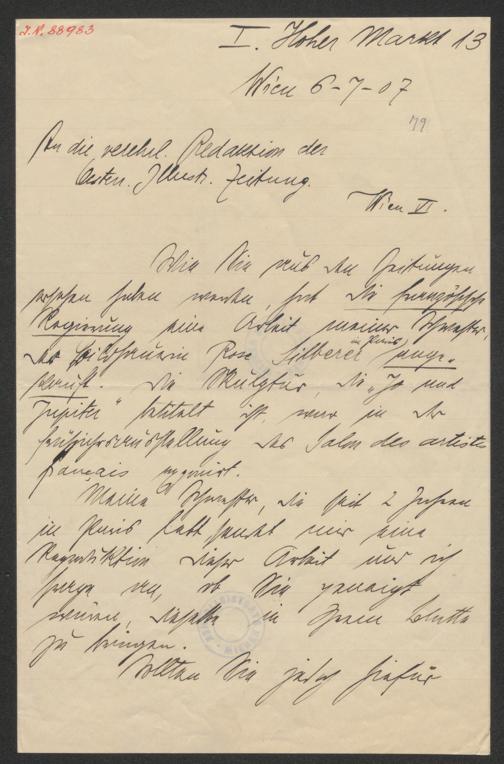 J.N. 88983
I. Hoher Markt 13
Wien 6-7-07
79
An die verehrl. Redaktion der
Oesterr. Illustr. Zeitung.
Wien VI.
Wie Sie aus den Zeitungen
ersehen haben werden, hat die französische
Regierung eine Arbeit meiner Schwester,
der Bildhauerin Rose Silberer in Paris ange-
kauft. Die Skulptur, die „Jo und
Jupiter" betitelt ist, war in der
Frühjahrsausstellung des Salon des artistes
français exponirt.
Meine Schwester, die seit 2 Jahren
in Paris lebt sendet mir eine
Reproduktion dieser Arbeit und ich
frage an, ob Sie geneigt
wären, dieselbe in Ihrem Blatte
zu bringen.
Sollten Sie jedoch hiefür